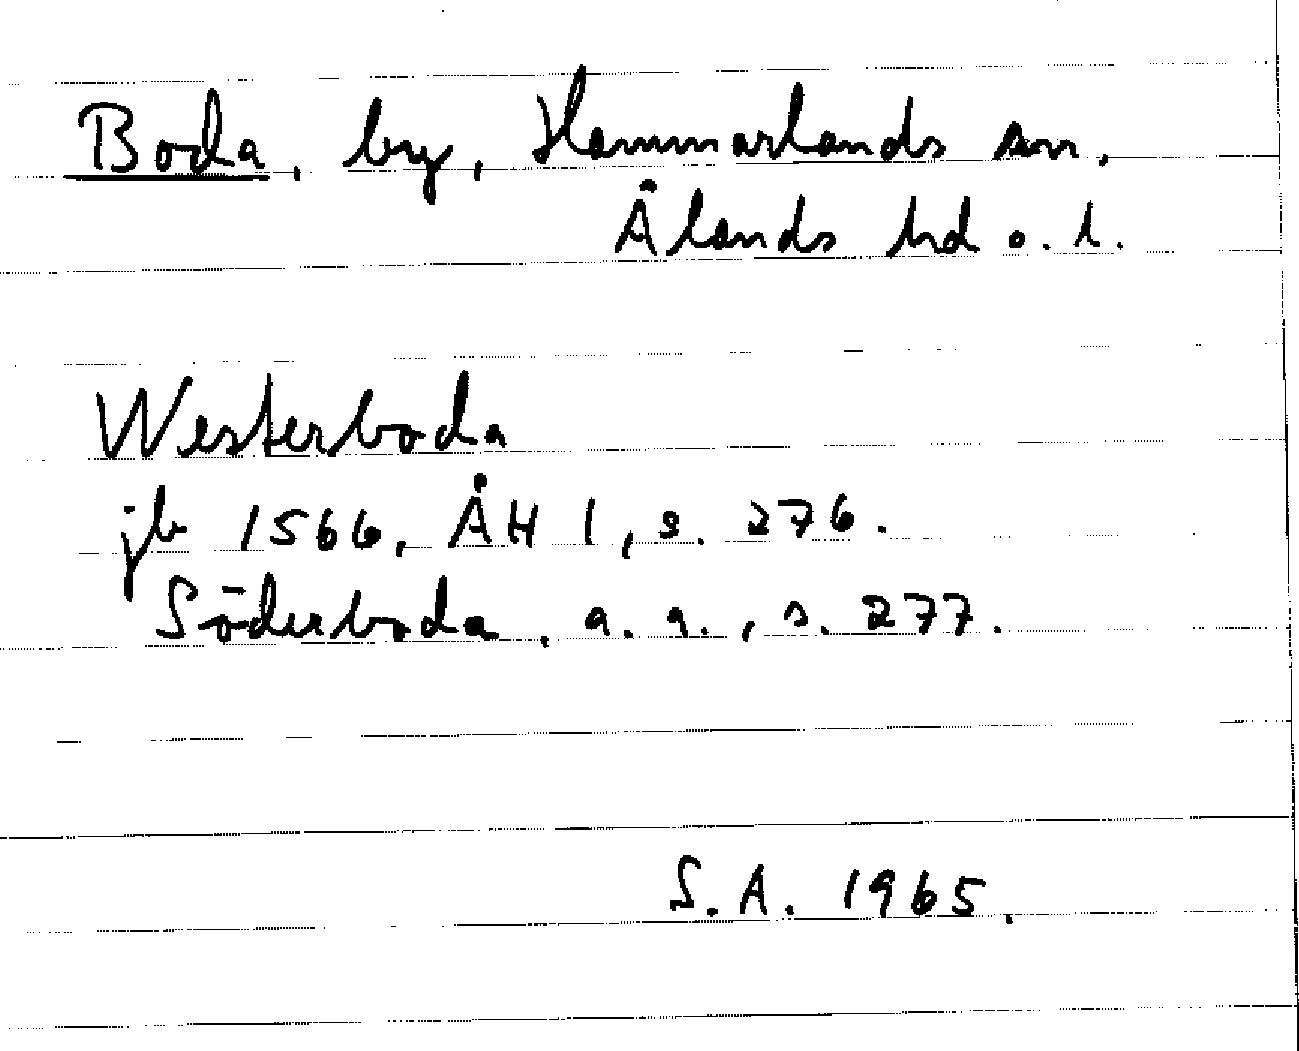 Boda, by, Hammarlands sn,
Ålands hd o. l.
Westerboda
jb 1566, ÅH 1, s. 276.
Söderboda, a.a., s. 277.
S.A. 1965.